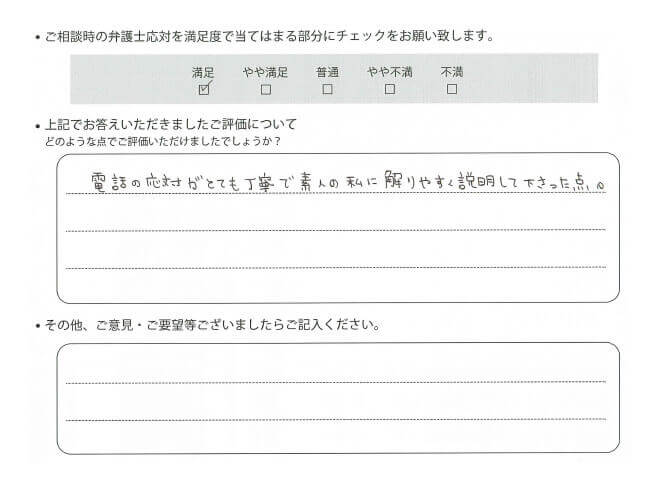 • ご相談時の弁護士応対を満足度で当てはまる部分にチェックをお願い致します。
満足 やや満足 普通 やや不満 不満
☑ ☐ ☐ ☐ ☐
• 上記でお答えいただきましたご評価について
どのような点でご評価いただけましたでしょうか？
電話の応対がとても丁寧で素人の私に解りやすく説明して下さった点。
• その他、ご意見・ご要望等ございましたらご記入ください。